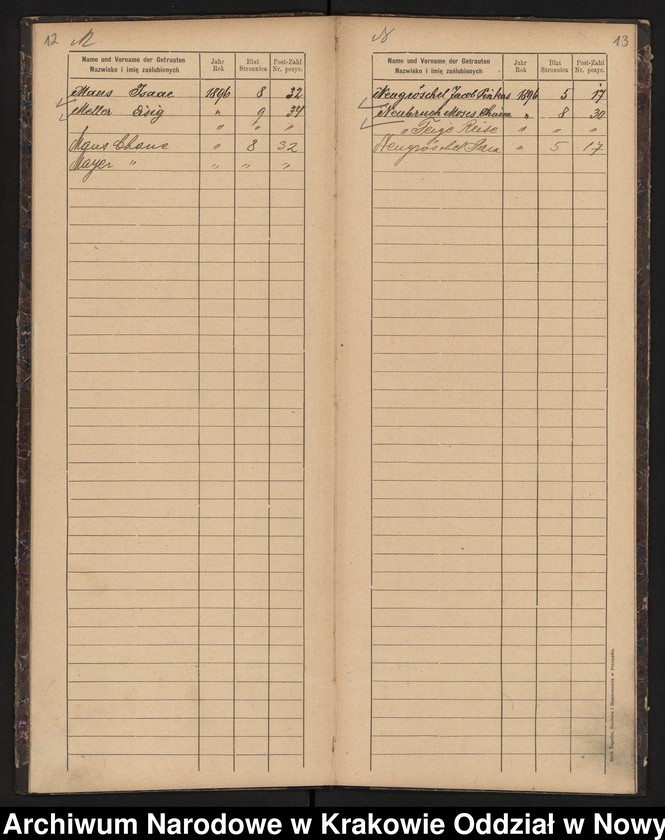 12 M
Name und Vorname der Getrauten Jahr Blatt Post-Zahl
Nazwisko i imię zaślubionych Rok Stronnica Nr. pozyc.
Maus Isaac 1896 8 32
Meller Eisig " 9 34
" " " "
Maus Chane " 8 32
Mayer " " " "
N 13
Name und Vorname der Getrauten Jahr Blatt Post-Zahl
Nazwisko i imię zaślubionych Rok Stronnica Nr. pozyc.
Neugröschel Jacob Pinkas 1896 5 17
Neubruch Moses Chaim " 8 30
" Feige Reise " " "
Neugröschel Sara " 5 17
Archiwum Narodowe w Krakowie Oddział w Nowy